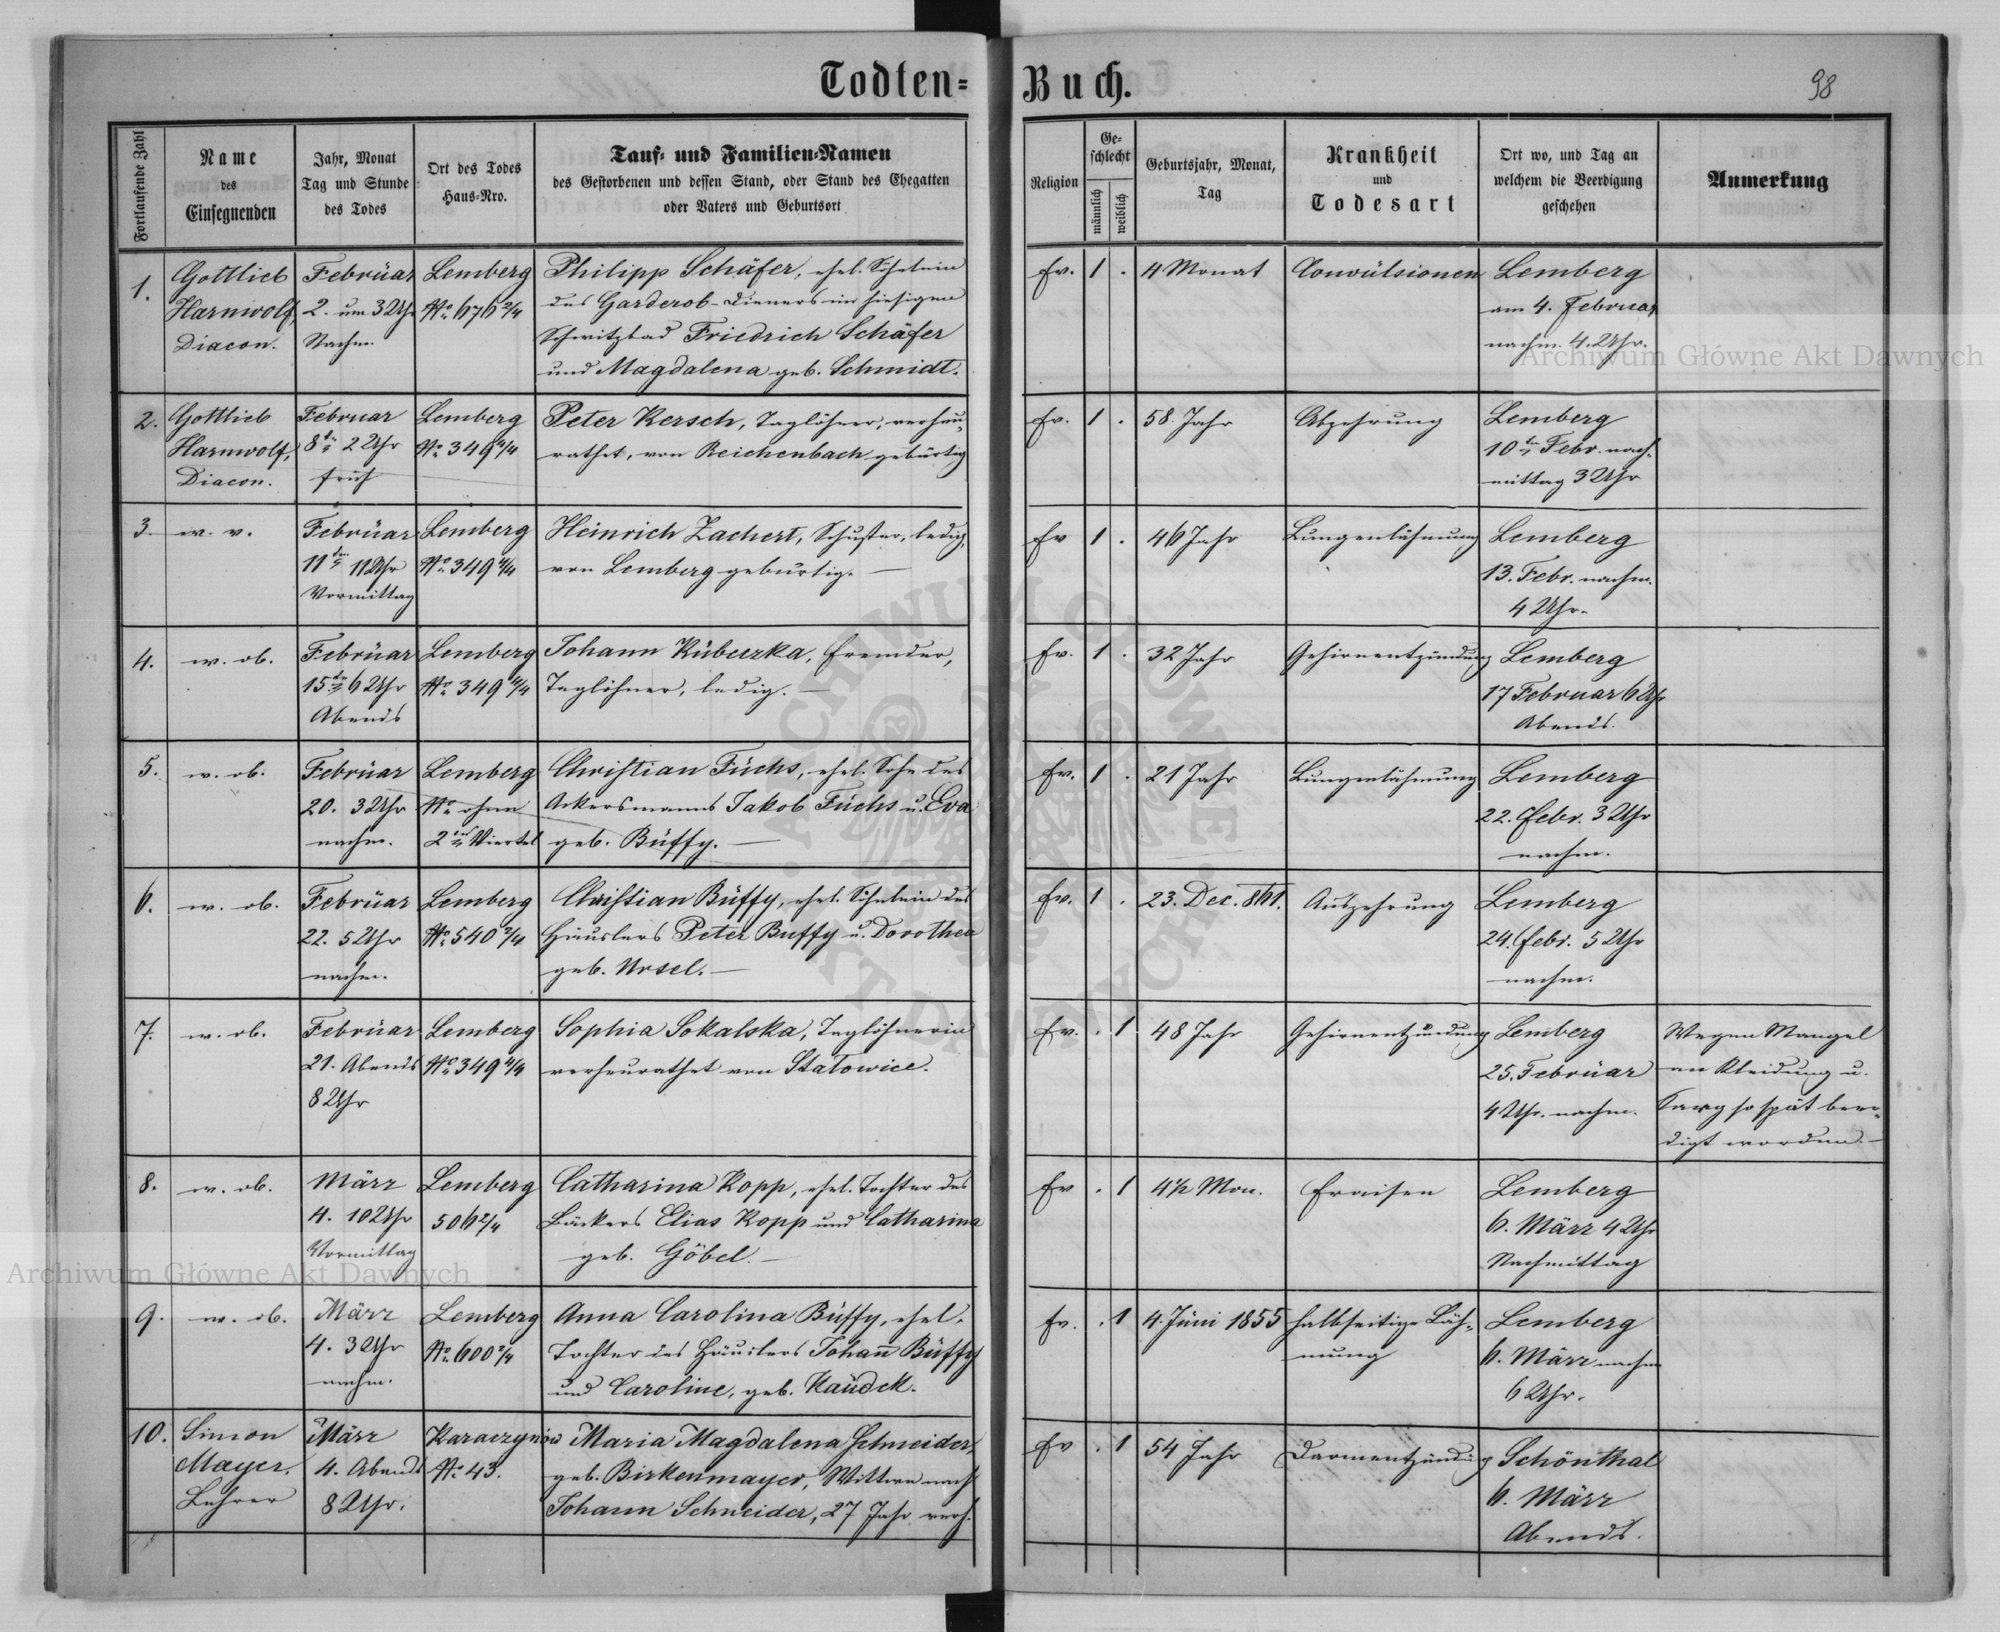 Todten=
Buch.
98
Fortlaufende Zahl
Name
des
Einsegnenden
Jahr, Monat
Tag und Stunde
des Todes
Ort des Todes
Haus-Nro.
Tauf- und Familien-Namen
des Gestorbenen und dessen Stand, oder Stand des Ehegatten
oder Vaters und Geburtsort
Religion
Ge-
schlecht
männlich
weiblich
Geburtsjahr, Monat,
Tag
Krankheit
und
Todesart
Ort wo, und Tag an
welchem die Beerdigung
geschehen
Anmerkung
1.
Gottlieb
Harnwolf,
Diacon.
Februar
2. um 3 Uhr
Nachm.
Lemberg
No. 676 2/4
Philipp Schäfer, ehel. Söhnlein
des Garderob-Dieners im hiesigen
Schwitzbad Friedrich Schäfer
und Magdalena geb. Schmidt.
Ev. 1 .
4 Monat
Convulsionen
Lemberg
am 4. Februar
nachm. 4. Uhr.
2.
Gottlieb
Harnwolf,
Diacon.
Februar
8ten 2 Uhr
früh
Lemberg
No. 349 4/4
Peter Kersch, Taglöhner, verheu-
rathet, von Reichenbach gebürtig
Ev. 1 .
58 Jahr
Abzehrung
Lemberg
10ten Febr. nach-
mittag 3 Uhr
3.
w. v.
Februar
11ten 11 Uhr
Vormittag
Lemberg
No. 349 4/4
Heinrich Zachert, Schuster, ledig,
von Lemberg gebürtig. —
Ev 1 .
46 Jahr
Lungenlähmung
Lemberg
13. Febr. nachm.
4 Uhr.
4.
w. ob.
Februar
15ten 6 Uhr
Abends
Lemberg
No. 349 4/4
Johann Kubeczka, fremder,
Taglöhner, ledig. —
Ev. 1 .
32 Jahr
Gehirnentzündung
Lemberg
17 Februar 6 Uhr
Abends.
5.
w. ob.
Februar
20. 3 Uhr
nachm.
Lemberg
No. ohne
2tes Viertel
Christian Fuchs, ehel. Sohn des
Ackersmanns Jakob Fuchs u. Eva
geb. Buffy. —
Ev. 1 .
21 Jahr
Lungenlähmung
Lemberg
22. Febr. 3 Uhr
nachm.
6.
w. ob.
Februar
22. 5 Uhr
nachm.
Lemberg
No. 540 2/4
Christian Buffy, ehel. Söhnlein des
Häuslers Peter Buffy u. Dorothea
geb. Ursel. —
Ev. 1 .
23. Dec. 861.
Auszehrung
Lemberg
24. Febr. 5 Uhr
nachm.
7.
w. ob.
Februar
21. Abends
8 Uhr
Lemberg
No. 349 4/4
Sophia Sokalska, Taglöhnerin
verheurathet von Statowice.
Ev. . 1
48 Jahr
Gehirnentzündung
Lemberg
25. Februar
4 Uhr. nachm.
Wegen Mangel
an Kleidung u.
Sarg so spät beer-
digt worden. —
8.
w. ob.
März
4. 10 Uhr
Vormittag
Lemberg
506 2/4
Catharina Kopp, ehel. Tochter des
Bäckers Elias Kopp und Catharina
geb. Göbel. —
Ev . 1
4 1/2 Mon.
Fraisen
Lemberg
6. März 4 Uhr
Nachmittag
9.
w. ob.
März
4. 3 Uhr
nachm.
Lemberg
No. 600 2/4
Anna Carolina Buffy, ehel.
Tochter des Häuslers Johann Buffy
und Caroline, geb. Kaudek.
Ev. . 1
4. Juni 1855
halbseitige Läh-
mung
Lemberg
6. März nachm
6 Uhr.
10.
Simon
Mayer,
Lehrer
März
4. Abends
8 Uhr.
Karaczynów
No. 43.
Maria Magdalena Schneider,
geb. Birkenmayer, Wittwe nach
Johann Schneider, 27 Jahr verh.
Ev . 1
54 Jahr
Darmentzündung
Schönthal
6. März
Abends.
Archiwum Główne Akt Dawnych
Archiwum Główne Akt Dawnych
ARCHIWUM GŁÓWNE AKT DAWNYCH